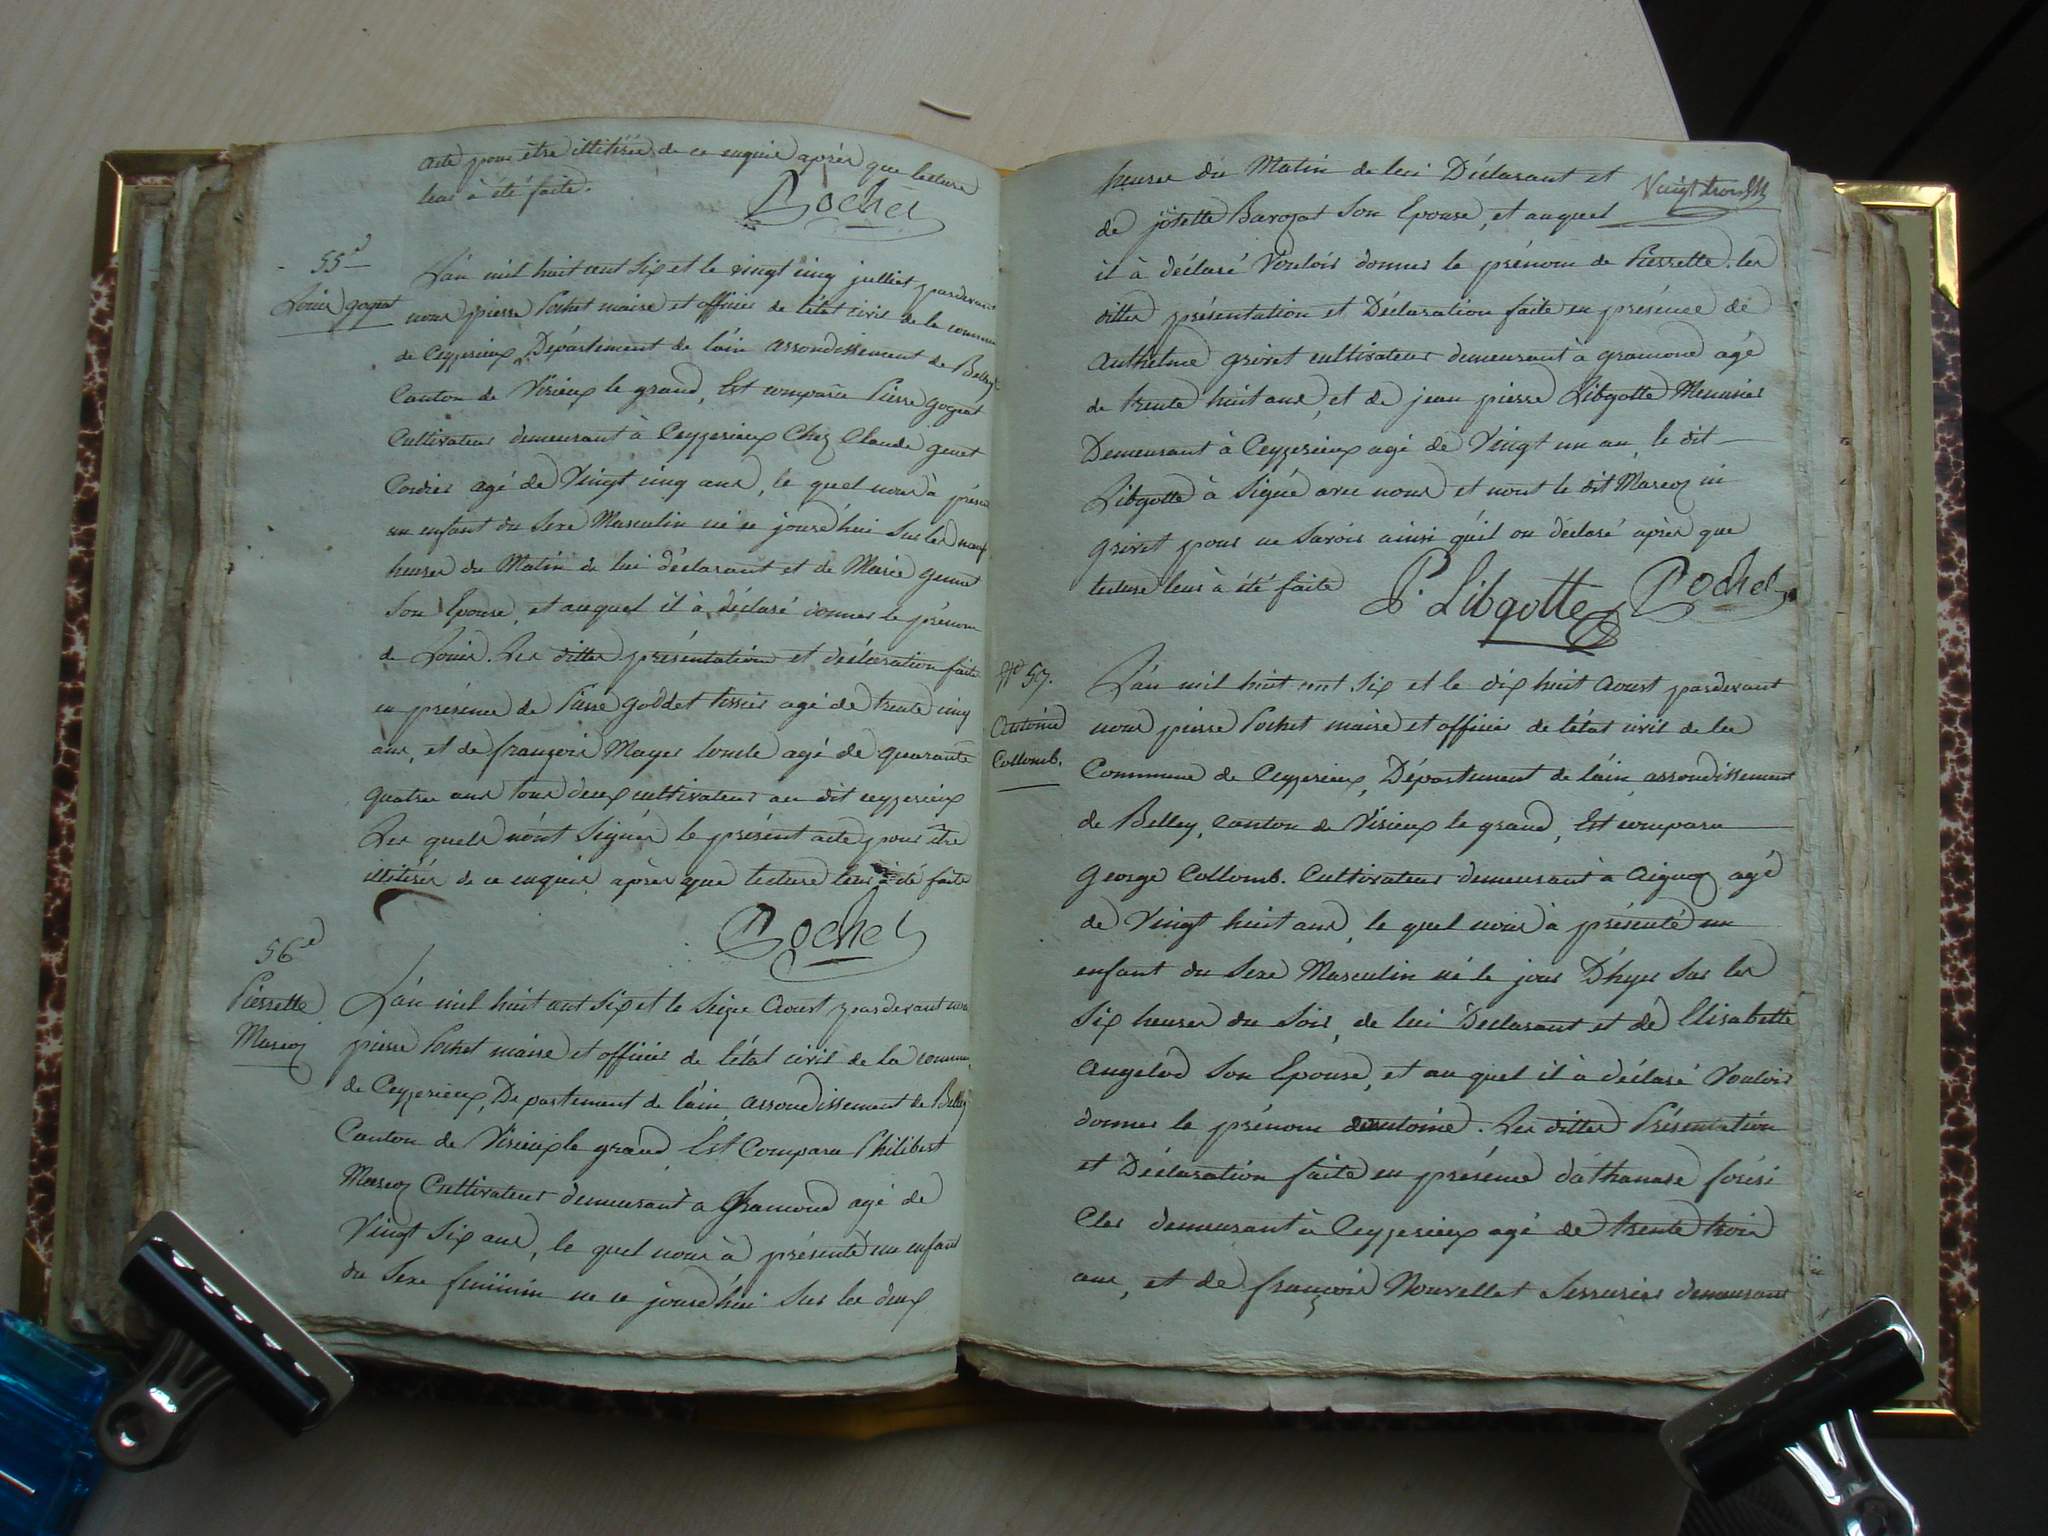 acte pour être illitérés de ce enquis après que lecture
leur à été faite.
Pochet
55e
Louis gogeat
L'an mil huit cent six et le vingt cinq julliet pardevant
nous pierre Pochet maire et officier de l'état civil de la commune
de Ceyzerieux, Département de l'ain arrondissement de Belley
Canton de Virieux le grand, Est comparu Pierre gogeat
Cultivateur demeurant à Ceyzerieux Chez Claude genet
Cordier agé de Vingt cinq ans, le quel nous à présenté
un enfant du Sexe Masculin né ce jourd'hui sur les neuf
heures du Matin de lui déclarant et de Marie genet
Son Epouse, et auquel il à déclaré donner le prénom
de Louis. Les dittes présentation et déclaration faite
en présence de Pierre goddet tissier agé de trente cinq
ans, et de françois Mayer agé de quarante
quatre ans tous deux cultivateur au dit ceyzerieux
Les quels n'ont Signés le présent acte pour être
illitérés de ce enquis après que lecture leur à été faite
Pochet
56e
Pierrette
Marcoz
L'an mil huit cent six et le Seize Aoust pardevant nous
pierre Pochet maire et officier de l'état civil de la commune
de Ceyzerieux, Département de l'ain arrondissement de Belley
Canton de Virieux le grand, Est Comparu Philibert
Marcoz Cultivateur demeurant a Gramond agé de
Vingt Six ans, le quel nous à présenté un enfant
du Sexe feminin né ce jourd'hui sur les deux
heures du Matin de lui Déclarant et
Vingt trois
de josette Barozat Son Epouse, et auquel
il à déclaré Vouloir donner le prénom de Pierrette. les
dittes présentation et Déclaration faite en présence de
Anthelme grivet cultivateur demeurant à gramond agé
de trente huit ans, et de jean pierre Libgotte Meunier
Demeurant à Ceyzerieux agé de Vingt un an, le dit
Libgotte à Signé avec nous et nont le dit Marcoz ni
grivet pour ne Savoir ainsi qu'il on déclaré après que
lecture leur à été faite
P. Libgotte
Pochet
No 57.
Antoine
Collomb.
L'an mil huit cent Six et le dix huit Aoust pardevant
nous pierre Pochet maire et officier de l'état civil de la
Commune de Ceyzerieux, Département de l'ain, arrondissement
de Belley, Canton de Virieux le grand, Est comparu
George Collomb. Cultivateur demeurant à Aignoz agé
de Vingt huit ans, le quel nous à présenté un
enfant du Sexe Masculin né le jour D'hyer Sur les
Six heures du Soir, de lui Déclarant et de Elisabette
Angelod Son Epouse, et au quel il à déclaré Vouloir
donner le prénom d'antoine. Les dittes Présentation
et Déclaration faite en présence d'athanase
Cler demeurant à Ceyzerieux agé de trente trois
ans, et de françois Nouvellet Serrurier demeurant